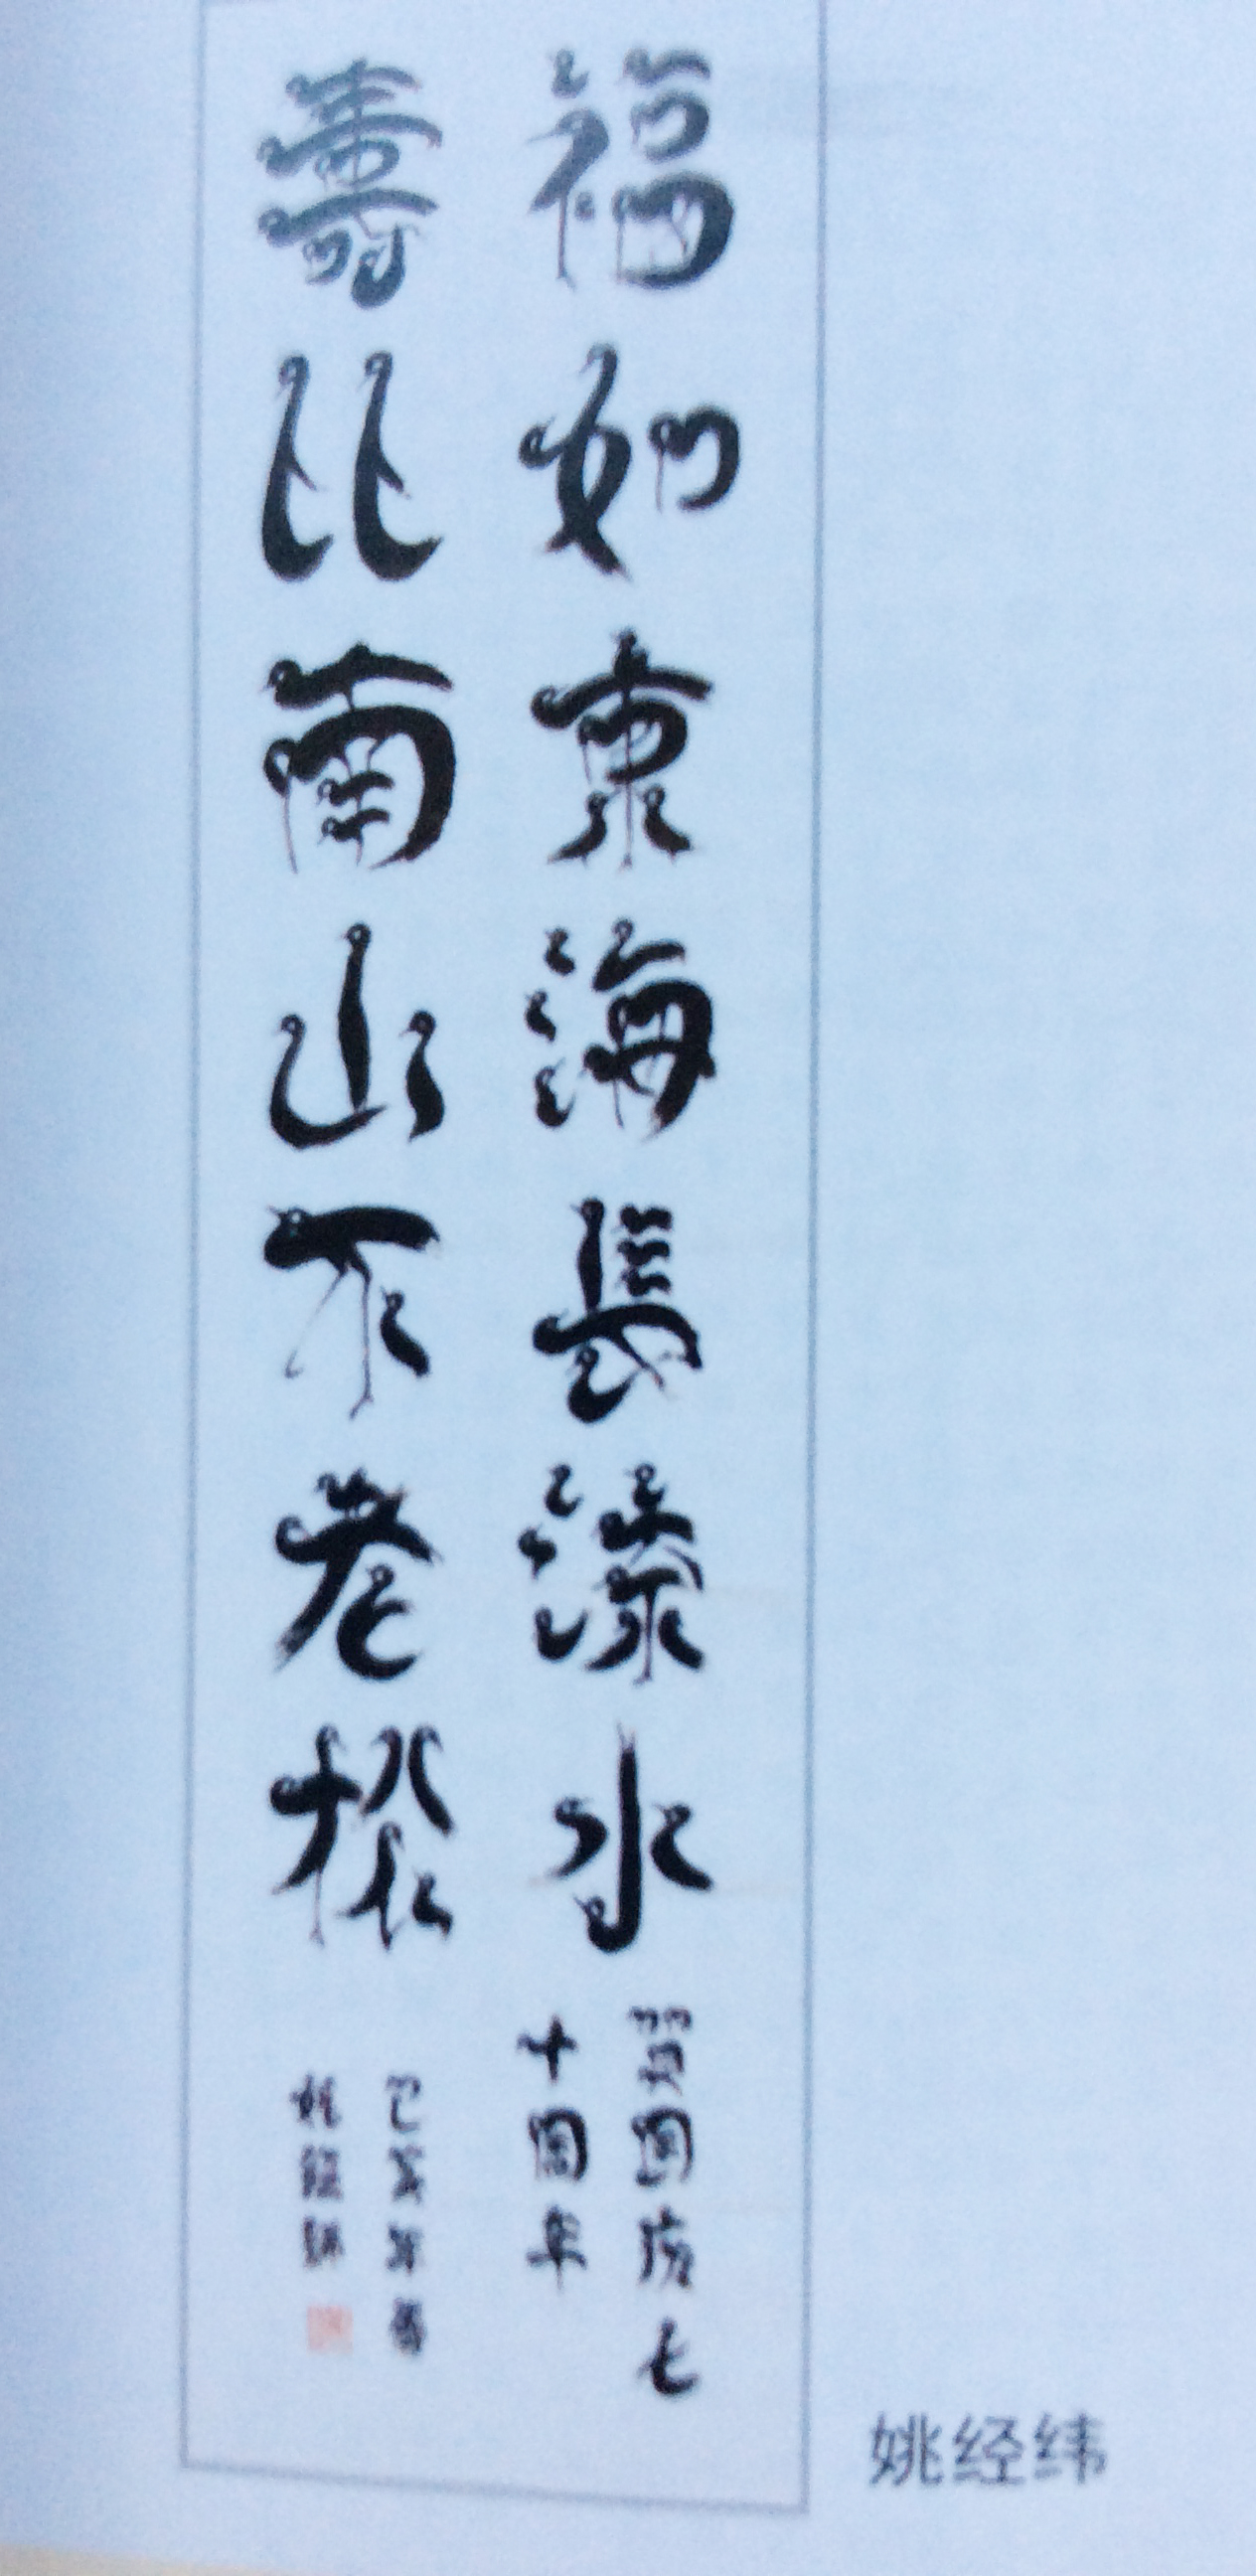 福如東海長流水
賀國慶七
十周年
壽比南山不老松
己亥年書
姚經緯
姚经纬